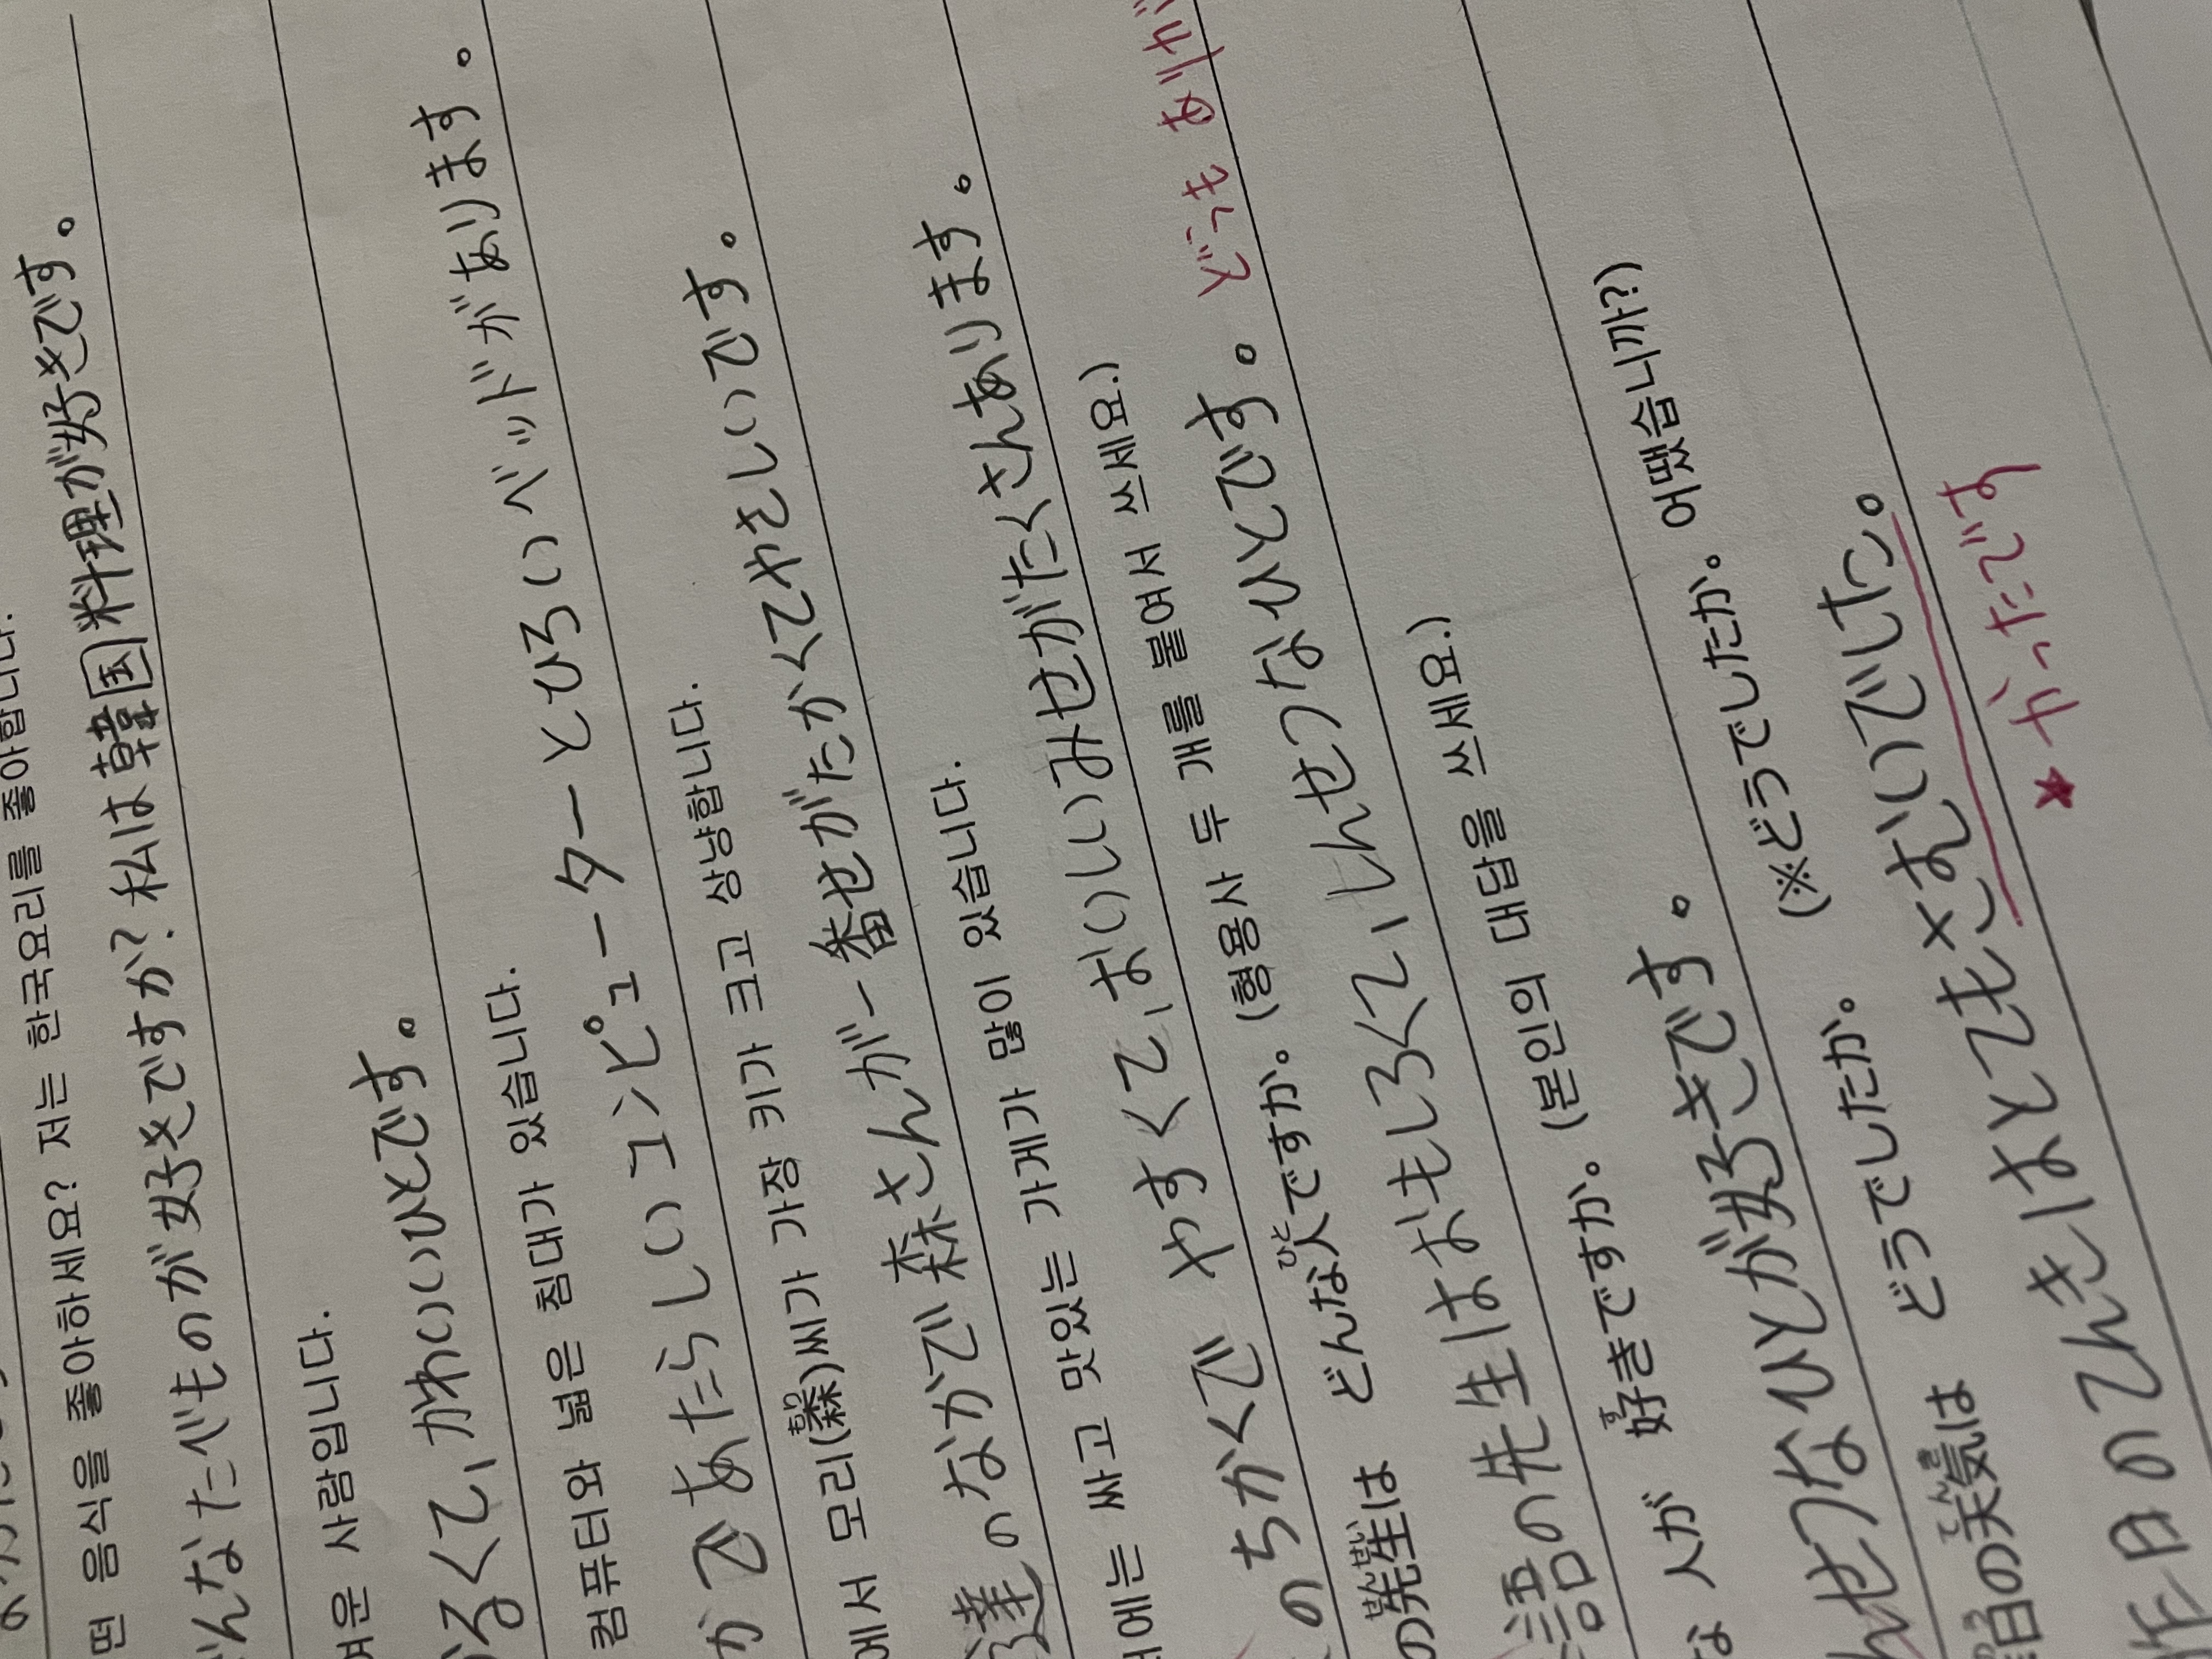 떤 음식을 좋아하세요? 저는 한국요리를 좋아합니다.
んなたべものが好きですか? 私は韓国料理が好きです。
운 사람입니다.
るくて、かわいいひとです。
컴퓨터와 넓은 침대가 있습니다.
か であたらしいコンピューターとひろいベッドがあります。
에서 모리(森もり)씨가 가장 키가 크고 상냥합니다.
達のなかで森さんが一番せがたかくてやさしいです。
에는 싸고 맛있는 가게가 많이 있습니다.
のちかくで やすくて、おいしいみせがたくさんあります。
の先生せんせいは どんな人ひとですか。(형용사 두 개를 붙여서 쓰세요.)
語の先生はおもしろくて、しんせつなひとです。 どうも ありが
な 人が 好すきですか。(본인의 대답을 쓰세요.)
んせつなひとが好きです。
日の天気てんきは どうでしたか。 (※どうでしたか。어땠습니까?)
昨日のてんきはとてもさむいでした。
★かったです